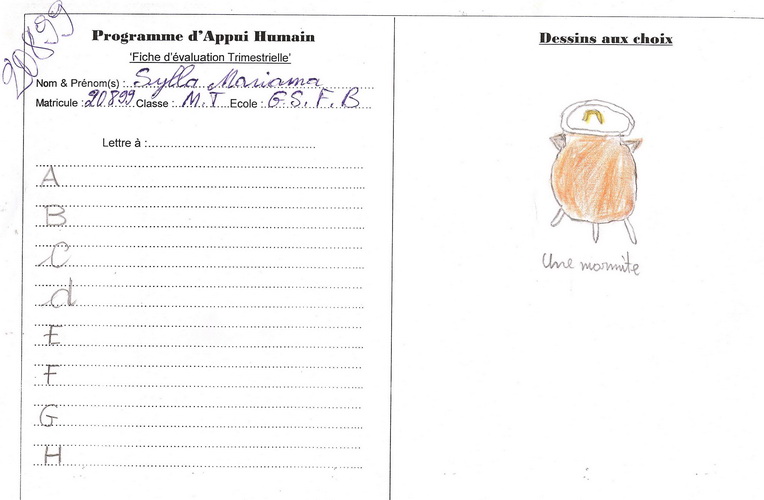 20899
Programme d'Appui Humain
'Fiche d'évaluation Trimestrielle'
Nom & Prénom(s) : Sylla Mariama
Matricule : 20899 Classe : M.T Ecole : G.S.F.B
Lettre à :
A
B
C
d
E
F
G
H
Dessins aux choix
Une marmite